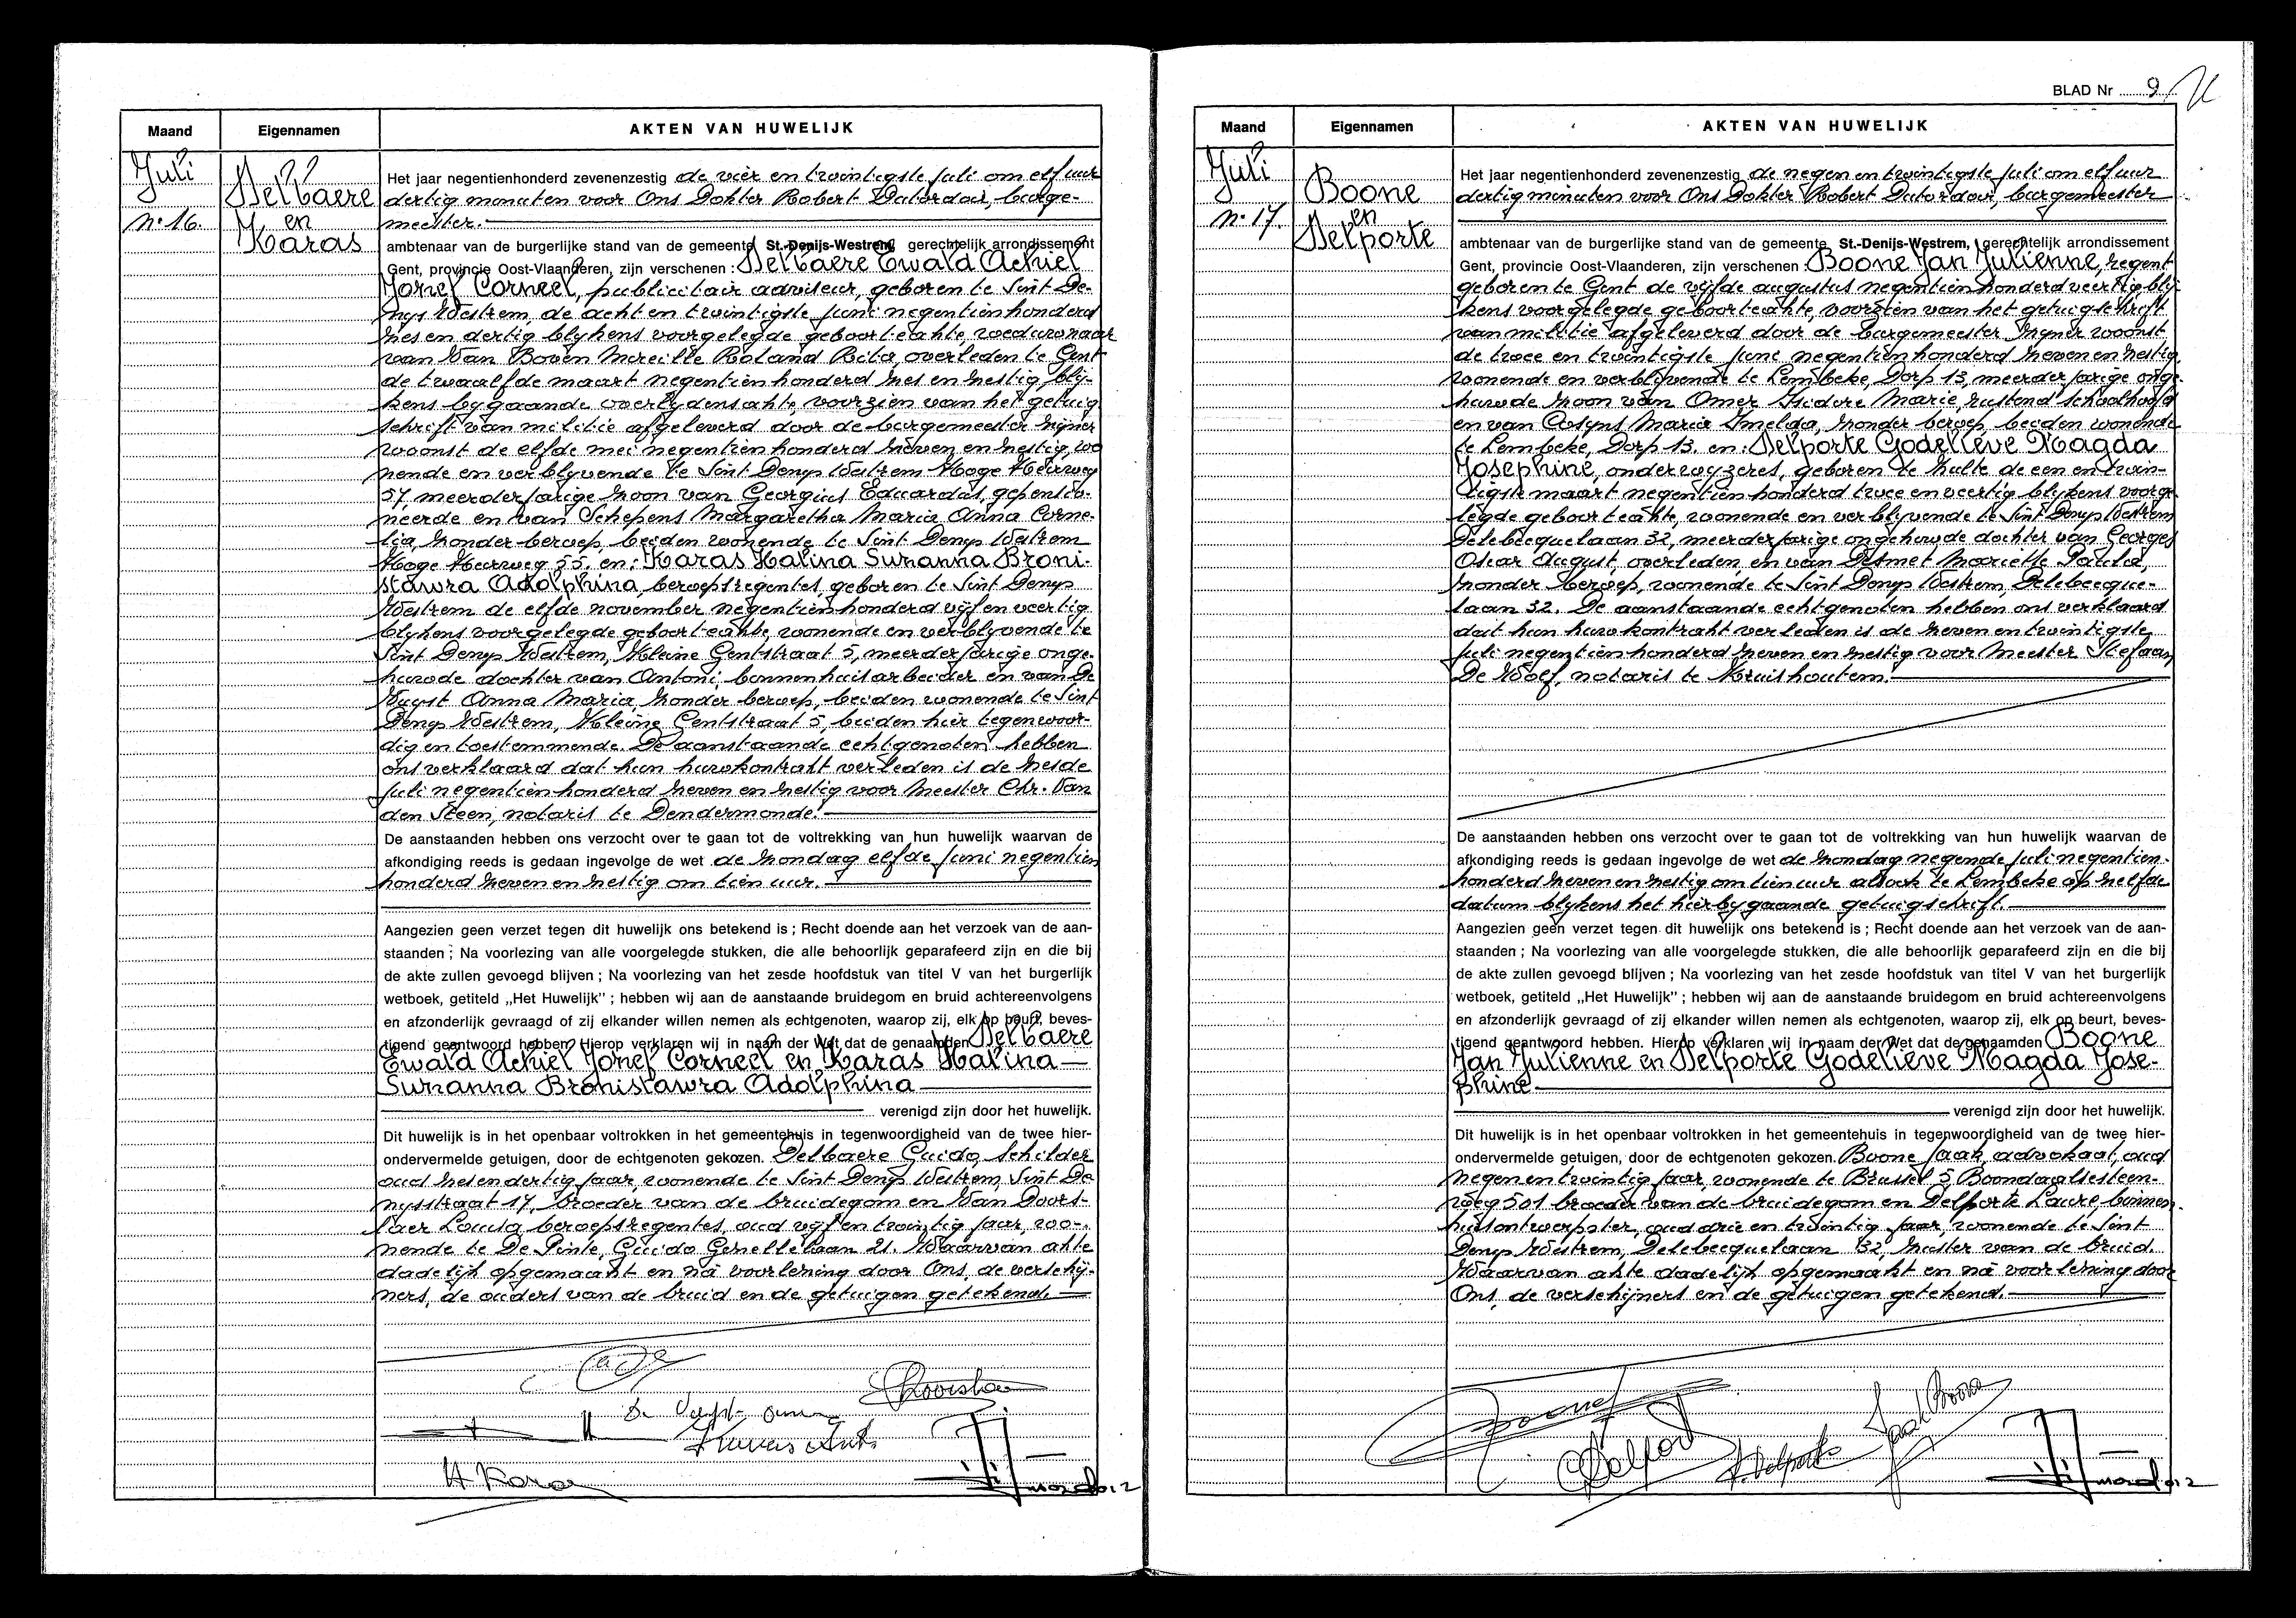 Maand
Eigennamen
AKTEN VAN HUWELIJK
Juli
Delbaere
nº 16.
en
Karas
Het jaar negentienhonderd zevenenzestig de vier en twintigste juli om elf uur
dertig minuten voor Ons Dokter Robert Dutordoir, burge-
meester.
ambtenaar van de burgerlijke stand van de gemeente St.-Denijs-Westrem, gerechtelijk arrondissement
Gent, provincie Oost-Vlaanderen, zijn verschenen : Delbaere Ewald Achiel
Jozef Corneel, publicitair adviseur, geboren te Sint De-
nys Westrem, de acht en twintigste juni negentienhonderd
zes en dertig blykens voorgelegde geboorteakte, weduwnaar
van Van Boven Mireille Roland Rita, overleden te Gent
de twaalfde maart negentienhonderd zes en zestig bly-
kens bygaande overlydensakte, voorzien van het getuig
schrift van militie afgeleverd door de burgemeester zijner
woonst de elfde mei negentienhonderd zeven en zestig, wo
nende en verblyvende te Sint Denys Westrem Hoge Heerweg
57, meerderjarige zoon van Georgius Eduardus, gepensio-
neerde en van Schepens Margaretha Maria Anna Corne-
lia, zonder beroep, beiden wonende te Sint Denys Westrem
Hoge Heerweg 55. en : Karas Halina Suzanna Broni-
stawra Adolphina, beroepsregentes, geboren te Sint Denys
Westrem de elfde november negentienhonderd vijf en veertig
blykens voorgelegde geboorteakte, wonende en verblyvende te
Sint Denys Westrem, Kleine Gentstraat 5, meerderjarige onge-
huwde dochter van Antoni, binnenhuisarbeider en van De
Vuyst Anna Maria zonder beroep, beiden wonende te Sint
Denys Westrem, Kleine Gentstraat 5, beiden hier tegenwoor-
dig en toestemmende. De aanstaande echtgenoten hebben
ons verklaard dat hun huwkontrakt verleden is de zesde
juli negentienhonderd zeven en zestig voor Meester Chr. Van
den Steen, notaris te Dendermonde.
De aanstaanden hebben ons verzocht over te gaan tot de voltrekking van hun huwelijk waarvan de
afkondiging reeds is gedaan ingevolge de wet de zondag elfde juni negentien
honderd zeven en zestig om tien uur.
Aangezien geen verzet tegen dit huwelijk ons betekend is ; Recht doende aan het verzoek van de aan-
staanden ; Na voorlezing van alle voorgelegde stukken, die alle behoorlijk geparafeerd zijn en die bij
de akte zullen gevoegd blijven ; Na voorlezing van het zesde hoofdstuk van titel V van het burgerlijk
wetboek, getiteld „Het Huwelijk" ; hebben wij aan de aanstaande bruidegom en bruid achtereenvolgens
en afzonderlijk gevraagd of zij elkander willen nemen als echtgenoten, waarop zij, elk op beurt, beves-
tigend geantwoord hebben. Hierop verklaren wij in naam der Wet dat de genaamden Delbaere
Ewald Achiel Jozef Corneel en Karas Halina
Suzanna Bronistawra Adolphina
verenigd zijn door het huwelijk.
Dit huwelijk is in het openbaar voltrokken in het gemeentehuis in tegenwoordigheid van de twee hier-
ondervermelde getuigen, door de echtgenoten gekozen. Delbaere Guido, schilder
oud zes en dertig jaar, wonende te Sint Denys Westrem, Sint De
nysstraat 17, broeder van de bruidegom en Van Doors-
laer Louisa, beroepsregentes, oud vijf en twintig jaar, wo-
nende te De Pinte, Guido Gezellelaan 21. Waarvan akte
dadelijk opgemaakt en na voorlezing door Ons, de verschij-
ners, de ouders van de bruid en de getuigen getekend.
De Vuyst Anna
Karas Ant.
H Karas
BLAD Nr 9
Maand
Eigennamen
AKTEN VAN HUWELIJK
Juli
Boone
nº 17.
en
Delporte
Het jaar negentienhonderd zevenenzestig de negen en twintigste juli om elf uur
dertig minuten voor Ons Dokter Robert Dutordoir, burgemeester
ambtenaar van de burgerlijke stand van de gemeente St.-Denijs-Westrem, gerechtelijk arrondissement
Gent, provincie Oost-Vlaanderen, zijn verschenen : Boone Jan Julienne, regent
geboren te Gent de vijfde augustus negentienhonderd veertig bly-
kens voorgelegde geboorteakte, voorzien van het getuigschrift
van militie afgeleverd door de burgemeester zijner woonst
de twee en twintigste juni negentienhonderd zeven en zestig,
wonende en verblijvende te Lembeke, Dorp 13, meerderjarige onge-
huwde zoon van Omer Isidore Marie, rustend schoolhoofd
en van Cosyns Maria Imelda, zonder beroep, beiden wonende
te Lembeke, Dorp 13. en : Delporte Godelieve Magda
Josephine, onderwyzeres, geboren te Hulte de een en twin-
tigste maart negentienhonderd twee en veertig blykens voorge-
legde geboorteakte, wonende en verblijvende te Sint Denys Westrem
Delebecquelaan 32, meerderjarige ongehuwde dochter van Georges
Oscar August, overleden en van Desmet Mariette Paula,
zonder beroep, wonende te Sint Denys Westrem, Delebecque-
laan 32. De aanstaande echtgenoten hebben ons verklaard
dat hun huwkontrakt verleden is de zeven en twintigste
juli negentienhonderd zeven en zestig voor Meester Stefaan
De Wolf, notaris te Kruishoutem.
De aanstaanden hebben ons verzocht over te gaan tot de voltrekking van hun huwelijk waarvan de
afkondiging reeds is gedaan ingevolge de wet de zondag negende juli negentien-
honderd zeven en zestig om tien uur alsook te Lembeke op zelfde
datum blykens het hierbygaande getuigschrift.
Aangezien geen verzet tegen dit huwelijk ons betekend is ; Recht doende aan het verzoek van de aan-
staanden ; Na voorlezing van alle voorgelegde stukken, die alle behoorlijk geparafeerd zijn en die bij
de akte zullen gevoegd blijven ; Na voorlezing van het zesde hoofdstuk van titel V van het burgerlijk
wetboek, getiteld „Het Huwelijk" ; hebben wij aan de aanstaande bruidegom en bruid achtereenvolgens
en afzonderlijk gevraagd of zij elkander willen nemen als echtgenoten, waarop zij, elk op beurt, beves-
tigend geantwoord hebben. Hierop verklaren wij in naam der Wet dat de genaamden Boone
Jan Julienne en Delporte Godelieve Magda Jose-
phine
verenigd zijn door het huwelijk.
Dit huwelijk is in het openbaar voltrokken in het gemeentehuis in tegenwoordigheid van de twee hier-
ondervermelde getuigen, door de echtgenoten gekozen. Boone Jaak, advokaat, oud
negen en twintig jaar, wonende te Brussel 5 Boondaalsesteen-
weg 501 broeder van de bruidegom en Delporte Laure, binnen-
huisontwerpster, oud drie en twintig jaar, wonende te Sint
Denys Westrem, Delebecquelaan 32, zuster van de bruid.
Waarvan akte dadelijk opgemaakt en na voorlezing door
Ons, de verschijners en de getuigen getekend.
Delporte
Jaak Boone